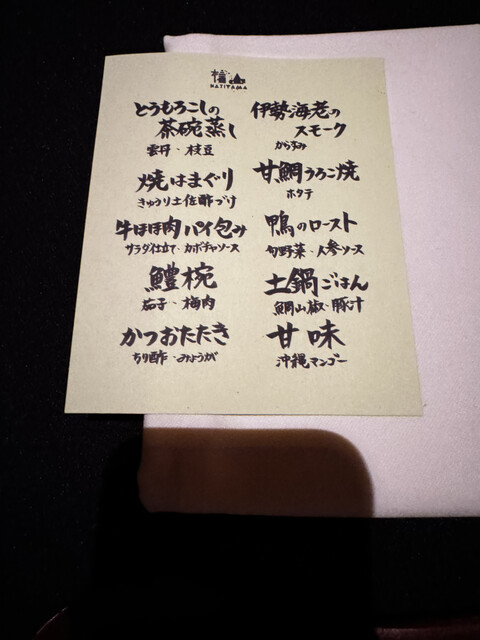 HAJIYAMA
とうもろこしの
茶碗蒸し
雲丹・枝豆
焼はまぐり
きゅうり土佐酢づけ
牛ほほ肉パイ包み
サラダ仕立て・カボチャソース
鱧椀
茄子・梅肉
かつおたたき
ちり酢・みょうが
伊勢海老の
スモーク
からすみ
甘鯛うろこ焼
ホタテ
鴨のロースト
旬野菜・人参ソース
土鍋ごはん
鯛山椒・豚汁
甘味
沖縄マンゴー